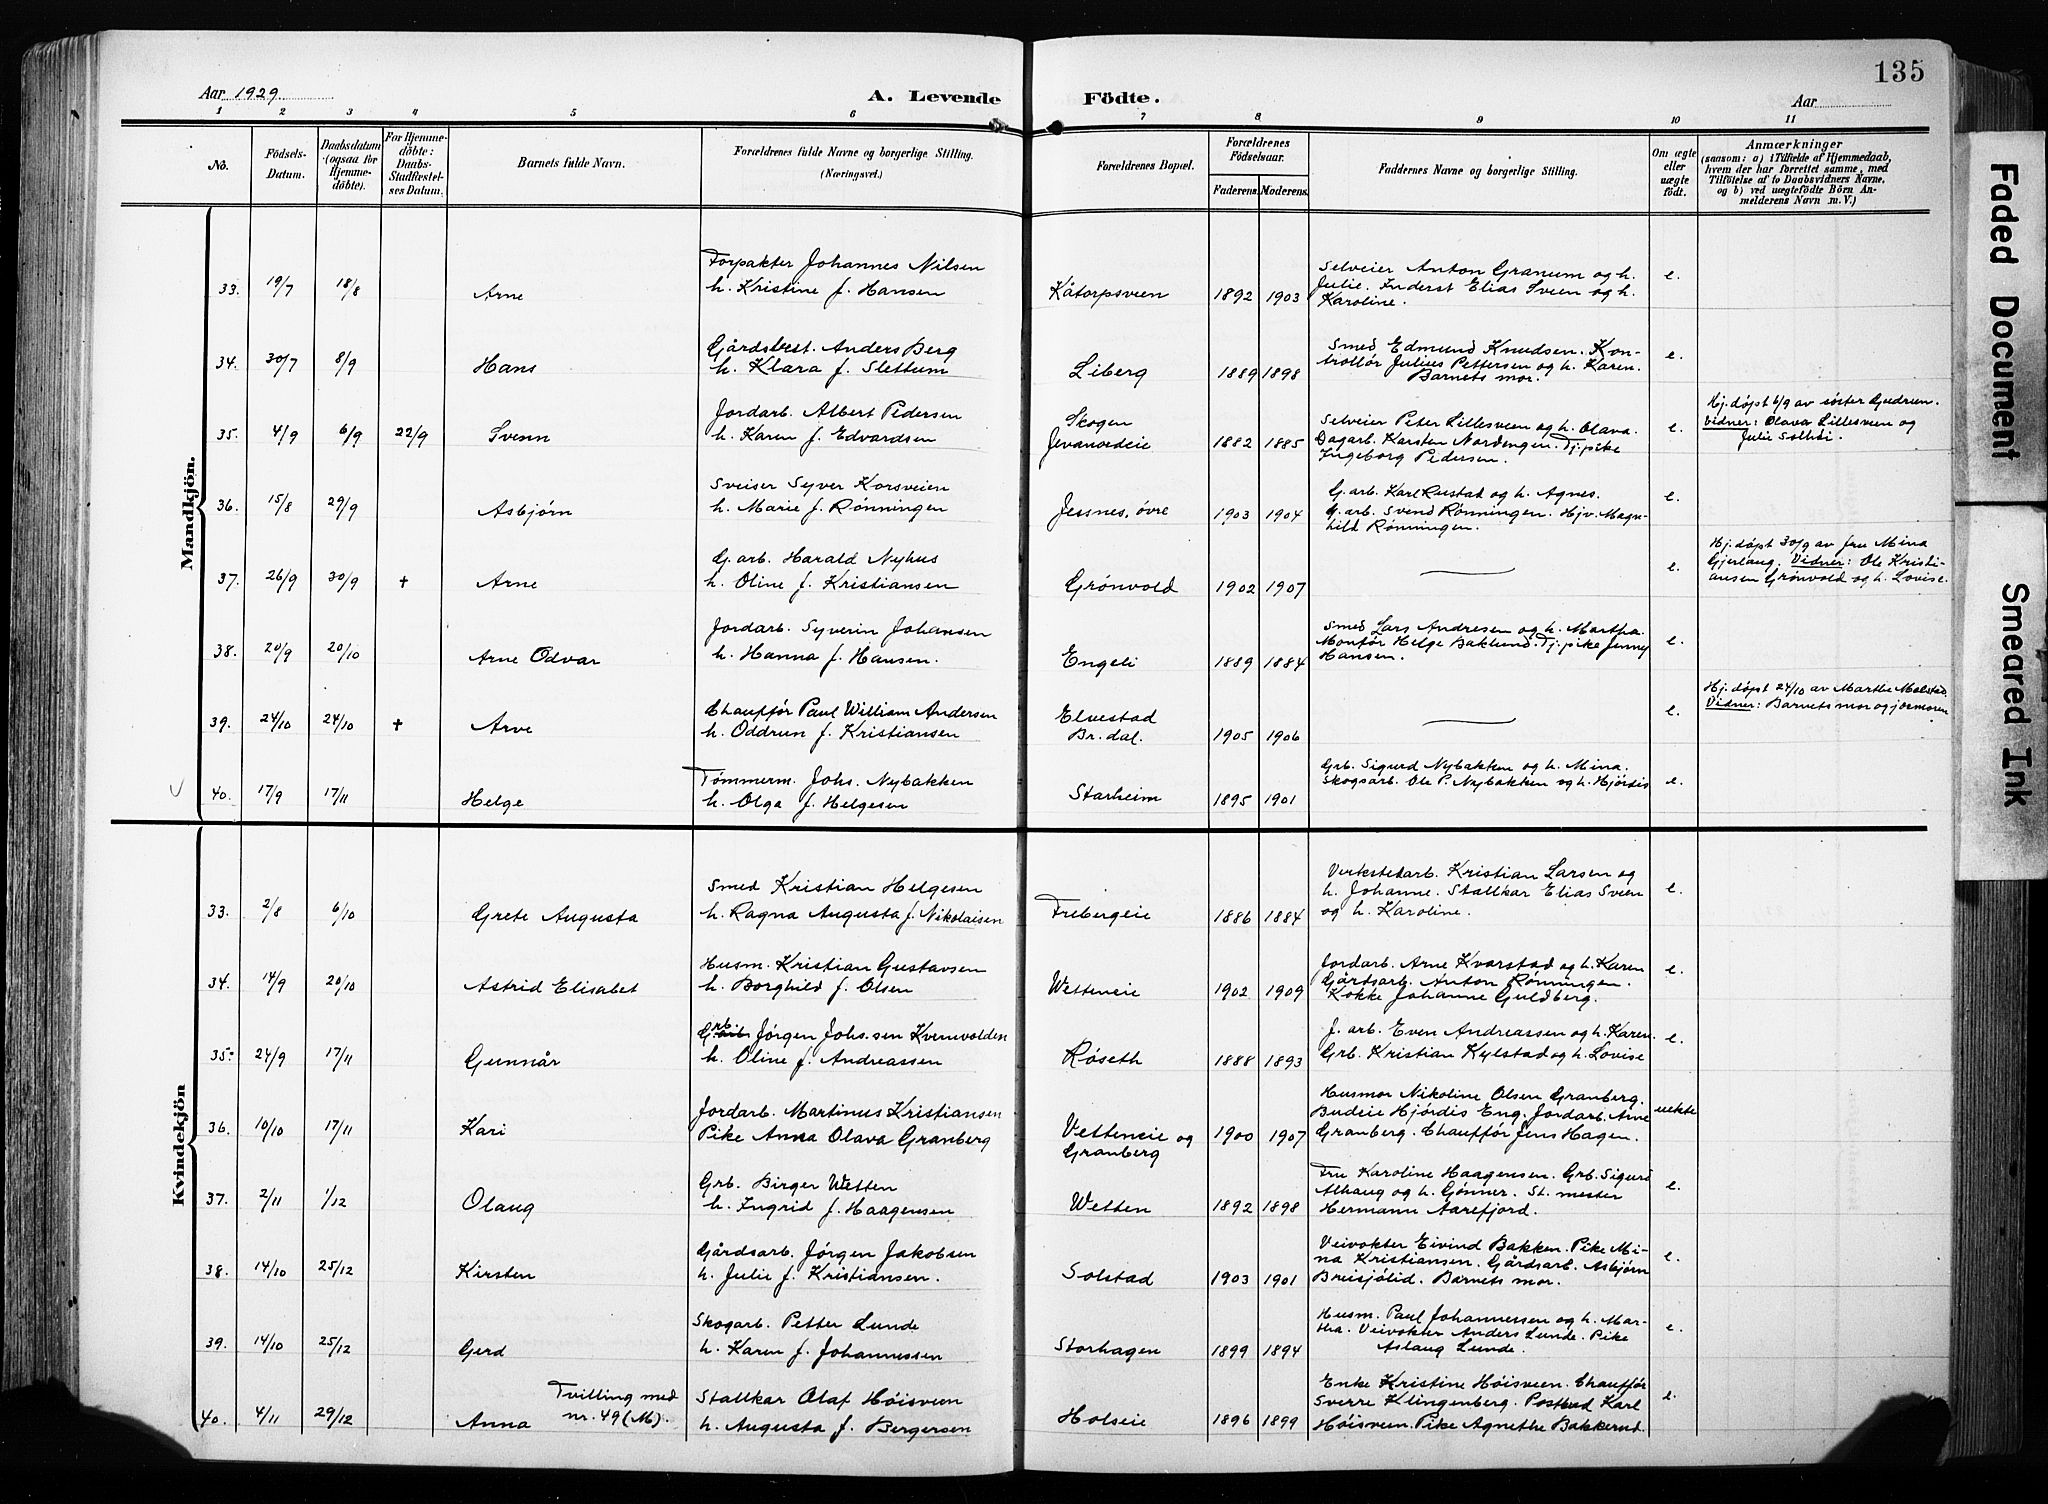 135
Aar 1929
A. Levende Födte.
Aar
1 2 3 4 5 6 7 8 9 10 11
No.
Födsels-
Datum.
Daabsdatum
(ogsaa for
Hjemme-
döbte).
For Hjemme-
döbte:
Daabs-
Stadfæstel-
ses Datum.
Barnets fulde Navn.
Forældrenes fulde Navne og borgerlige Stilling.
(Næringsvei.)
Forældrenes Bopæl.
Forældrenes
Födselsaar.
Faderens. Moderens.
Faddernes Navne og borgerlige Stilling.
Om ægte
eller
uægte
födt.
Anmærkninger
(saasom: a) i Tilfælde af Hjemmedaab,
hvem der har forrettet samme, med
Tilföielse af to Daabsvidners Navne,
og b) ved uægtefödte Börn An-
melderens Navn m. V.)
Mandkjön.
33. 19/7 18/8 Arne
Forpakter Johannes Nilsen
h. Kristine f. Hansen
Kåtorpsveen 1892 1903
Selveier Anton Granum og h.
Julie. Inderst Elias Sveen og h.
Karoline.
e.
34. 30/7 8/9 Hans
Gårdsbest. Anders Berg
h. Klara f. Slettum
Liberg 1889 1898
Smed Edmund Knudsen. Kon-
trollør Julius Pettersen og h. Karen.
Barnets mor.
e.
35. 4/9 6/9 22/9 Svenn
Jordarb. Albert Pedersen
h. Karen f. Edvardsen
Skogen
Jevaneeie 1882 1885
Selveier Peter Lillesveen og h. Olava.
Dagarb. Karsten Nordengen. Tj.pike
Ingeborg Pedersen.
e.
Hj.døpt 6/9 av søster Gudrun.
Vidner: Olava Lillesveen og
Julie Sollid.
36. 15/8 29/9 Asbjørn
Sveiser Syver Korsveien
h. Marie f. Rønningen
Jessnes, øvre 1903 1904
G.arb. Karl Rustad og h. Agnes.
G.arb. Svend Rønningen. Hjv. Magn-
hild Rønningen.
e.
37. 26/9 30/9 † Arne
G.arb. Harald Nyhus
h. Oline f. Kristiansen
Grønvold 1902 1907
e.
Hj.døpt 30/9 av fru Mina
Gjerlaug. Vidner: Ole Kristi-
ansen Grønvold og h. Lovise.
38. 20/9 20/10 Arne Odvar
Jordarb. Syverin Johansen
h. Hanna f. Hansen.
Engeli 1889 1884
Smed Lars Andresen og h. Martha.
Montør Helge Baklund. Tj.pike Jenny
Hansen.
e.
39. 24/10 24/10 † Arve
Chauffør Paul William Andersen
h. Oddrun f. Kristiansen
Elvestad
Br.dal. 1905 1906
e.
Hj.døpt 24/10 av Marthe Molstad.
Vidner: Barnets mor og jormoren
40. 17/9 17/11 Helge
Tømmerm. Johs. Nybakken
h. Olga f. Helgesen
Starheim 1895 1901
Grb. Sigurd Nybakken og h. Mina.
Skogsarb. Ole P. Nybakken og h. Hjördis
e.
Kvindekjön
33. 2/8 6/10 Grete Augusta
Smed Kristian Helgesen
h. Ragna Augusta f. Nikolaisen
Frebergeie 1886 1884
Verkstedarb. Kristian Larsen og
h. Johanne. Stallkar Elias Sveen
og h. Karoline.
e.
34. 14/9 20/10 Astrid Elisabet
Husm. Kristian Gustavsen
h. Borghild f. Olsen
Wetteneie 1902 1909
Jordarb. Arne Kvarstad og h. Karen
Gårdsarb. Anton Rønningen.
Kokke Johanne Guldberg.
e.
35. 24/9 17/11 Gunnår
Grb. Jørgen Johs.sen Kvernvolden
h. Oline f. Andreassen
Røseth 1888 1893
J. arb. Even Andreassen og h. Karen.
Grb. Kristian Kylstad og h. Lovise
e.
36. 10/10 17/11 Kari
Jordarb. Martinus Kristiansen
Pike Anna Olava Granberg
Vetteneie og
Granberg 1900 1907
Husmor Nikoline Olsen Granberg.
Budeie Hjördis Eng. Jordarb. Arne
Granberg. Chauffør Jens Hagen.
uekte
37. 2/11 1/12 Olaug
Grb. Birger Wetten
h. Ingrid f. Haagensen
Wetten 1892 1898
Fru Karoline Haagensen. Grb. Sigurd
Alhaug og h. Gønner. St. mester
Hermann Aarefjord.
e.
38. 14/10 25/12 Kirsten
Gårdsarb. Jørgen Jakobsen
h. Julie f. Kristiansen.
Solstad 1903 1901
Veivokter Eivind Bakken. Pike Mi-
na Kristiansen. Gårdsarb. Asbjørn
Breisjölid. Barnets mor.
e.
39. 14/10 25/12 Gerd
Skogarb. Petter Lunde
h. Karen f. Johannessen
Storhagen 1899 1894
Husm. Paul Johannessen og h. Mar-
tha. Veivokter Anders Lunde. Pike
Aslaug Lunde.
e.
40. 4/11 29/12 Anna
Tvilling med
nr. 49 (M).
Stallkar Olaf Höisveen
h. Augusta f. Bergersen
Holseie 1896 1899
Enke Kristine Höisveen. Chauffør
Sverre Klingenberg. Postbud Karl
Höisveen. Pike Agnethe Bakkerud.
e.
Faded Document
Smeared Ink